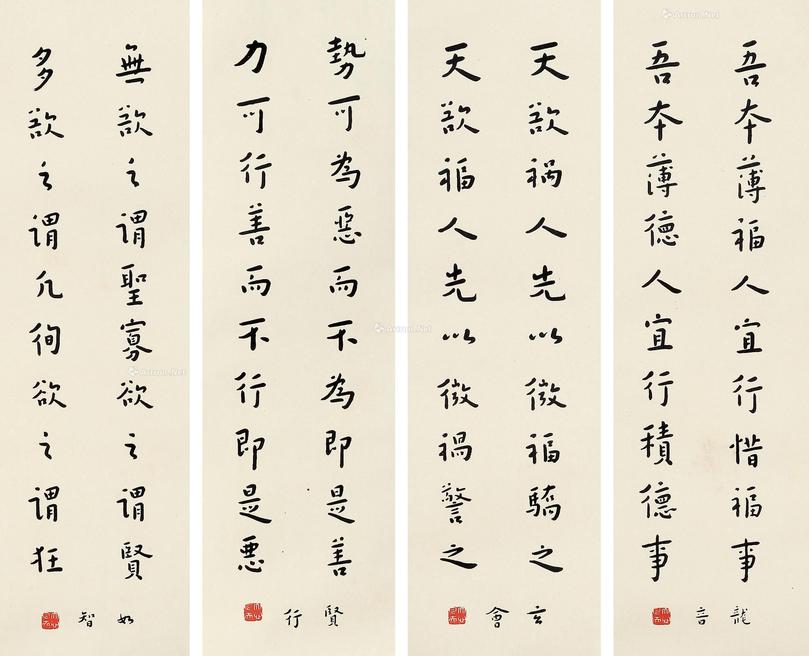 吾本薄福人宜行惜福事
吾本薄德人宜行積德事
龍音
天欲禍人先以微福驕之
天欲福人先以微禍警之
玄會
勢可為惡而不為即是善
力可行善而不行即是惡
賢行
無欲之謂聖寡欲之謂賢
多欲之謂凡徇欲之謂狂
如智